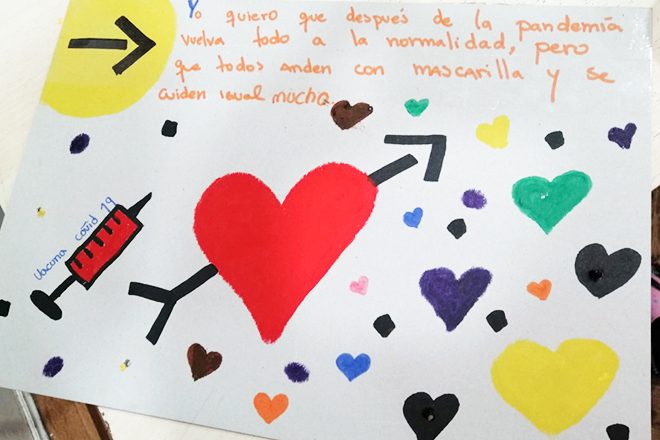 Yo quiero que después de la pandemia
vuelva todo a la normalidad, pero
que todos anden con mascarilla y se
cuiden igual mucho.
Vacuna covid 19